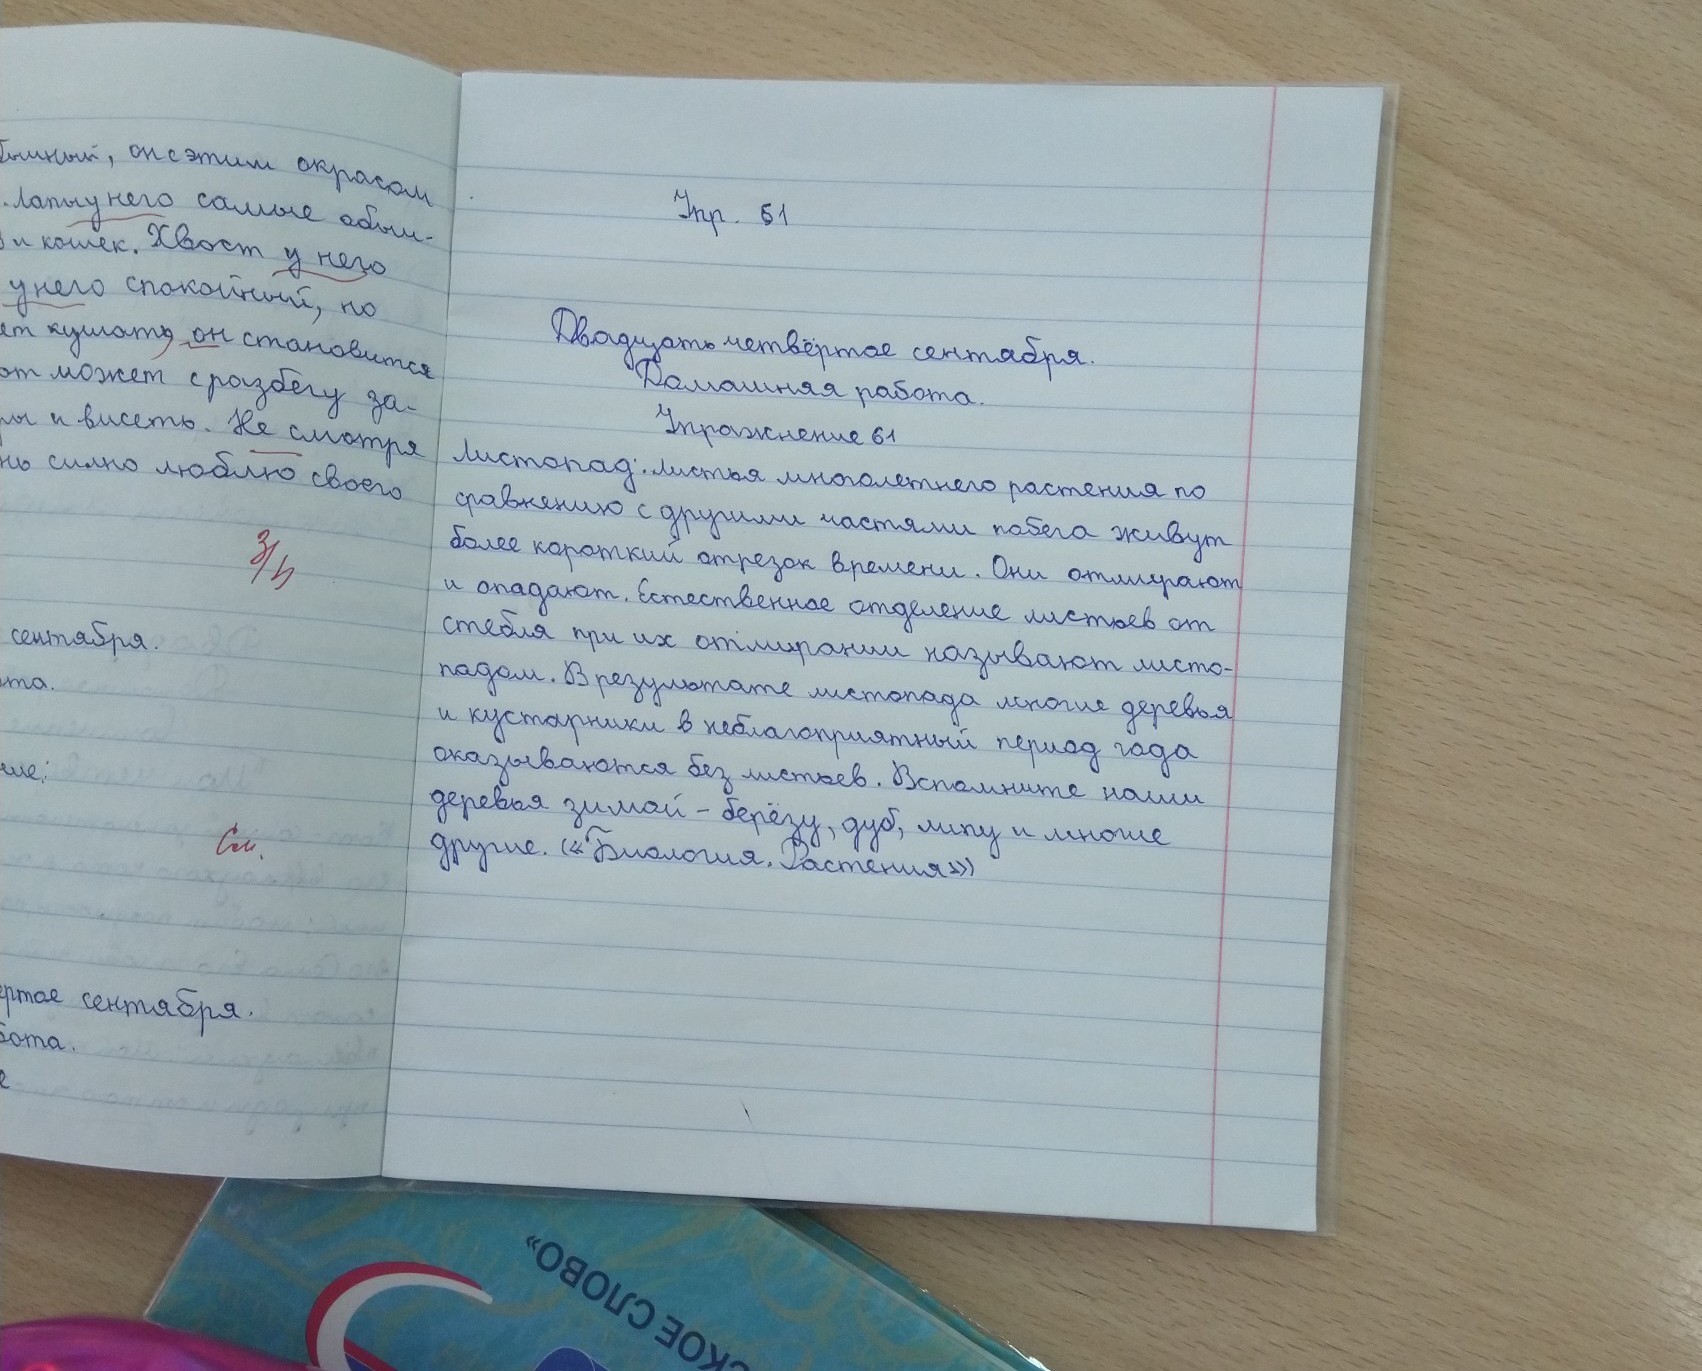 , он с этим окрасом
Лапы у него самые обыч-
и кошек. Хвост у него
у него спокойный, но
ет кушать, он становится
от может с разбегу за-
ры и висеть. Не смотря
нь силно люблю своего
3/4
сентября.
ота.
ние:
См.
ёртое сентября.
бота.
е
Упр. 61
Двадцать четвёртое сентября.
Домашняя работа.
Упражнение 61
Листопад: листья многолетнего растения по
сравнению с другими частями побега живут
более короткий отрезок времени. Они отмирают
и опадают. Естественное отделение листьев от
стебля при их отмирании называют листо-
падом. В результате листопада многие деревья
и кустарники в неблагоприятный период года
оказываются без листьев. Вспомните наши
деревья зимой – берёзу, дуб, липу и многие
другие. («Биология. Растения»)
СКОЕ СЛОВО»